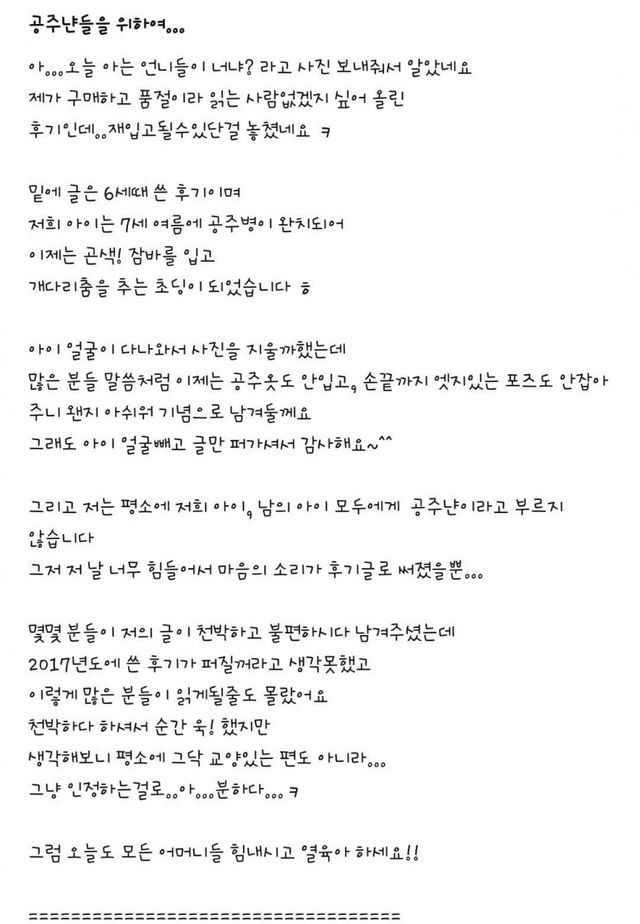 공주냔들을 위하여...
아...오늘 아는 언니들이 너냐? 라고 사진 보내줘서 알았네요
제가 구매하고 품절이라 읽는 사람없겠지 싶어 올린
후기인데..재입고될수있단걸 놓쳤네요 ㅋ
밑에 글은 6세때 쓴 후기이며
저희 아이는 7세 여름에 공주병이 완치되어
이제는 곤색! 잠바를 입고
개다리춤을 추는 초딩이 되었습니다 ㅎ
아이 얼굴이 다나와서 사진을 지울까했는데
많은 분들 말씀처럼 이제는 공주옷도 안입고, 손끝까지 엣지있는 포즈도 안잡아
주니 왠지 아쉬워 기념으로 남겨둘께요
그래도 아이 얼굴빼고 글만 퍼가셔서 감사해요~^^
그리고 저는 평소에 저희 아이, 남의 아이 모두에게 공주냔이라고 부르지
않습니다
그저 저 날 너무 힘들어서 마음의 소리가 후기글로 써졌을뿐...
몇몇 분들이 저의 글이 천박하고 불편하시다 남겨주셨는데
2017년도에 쓴 후기가 퍼질꺼라고 생각못했고
이렇게 많은 분들이 읽게될줄도 몰랐어요
천박하다 하셔서 순간 욱! 했지만
생각해보니 평소에 그닥 교양있는 편도 아니라...
그냥 인정하는걸로..아...분하다...ㅋ
그럼 오늘도 모든 어머니들 힘내시고 열육아 하세요!!
===================================